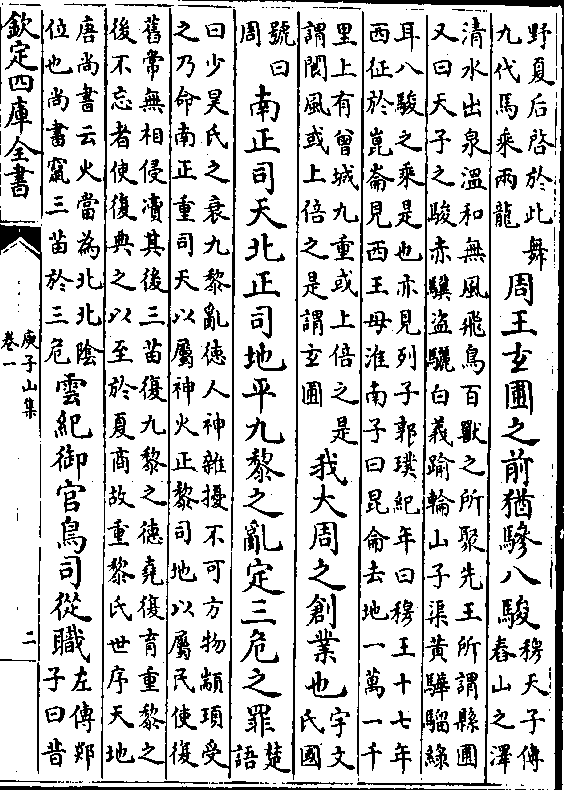 野夏后啓於此舞
九代馬乘兩龍
周王玄圃之前猶驂八駿
穆天子傳
舂山之澤
清水出泉溫和無風飛鳥百獸之所聚先王所謂縣圃
又曰天子之駿赤驥盜驪白義踰輪山子渠黃驊騮綠
耳八駿之乘是也亦見列子郭璞紀年曰穆王十七年
西征於崑崙見西王母淮南子曰昆侖去地一萬一千
里上有曾城九重或上倍之是
謂閬風或上倍之是謂玄圃
我大周之創業也
宇文
氏國
號曰
周
南正司天北正司地平九黎之亂定三危之罪
楚
語
曰少昊氏之衰九黎亂德人神雜擾不可方物顓頊受
之乃命南正重司天以屬神火正黎司地以屬民使復
舊常無相侵凟其後三苗復九黎之德堯復育重黎之
後不忘者使復典之以至於夏商故重黎氏世序天地
唐尚書云火當為北北陰
位也尚書竄三苗於三危
雲紀御官鳥司從職
左傳郯
子曰昔
欽定四庫全書
庾子山集
卷一
二